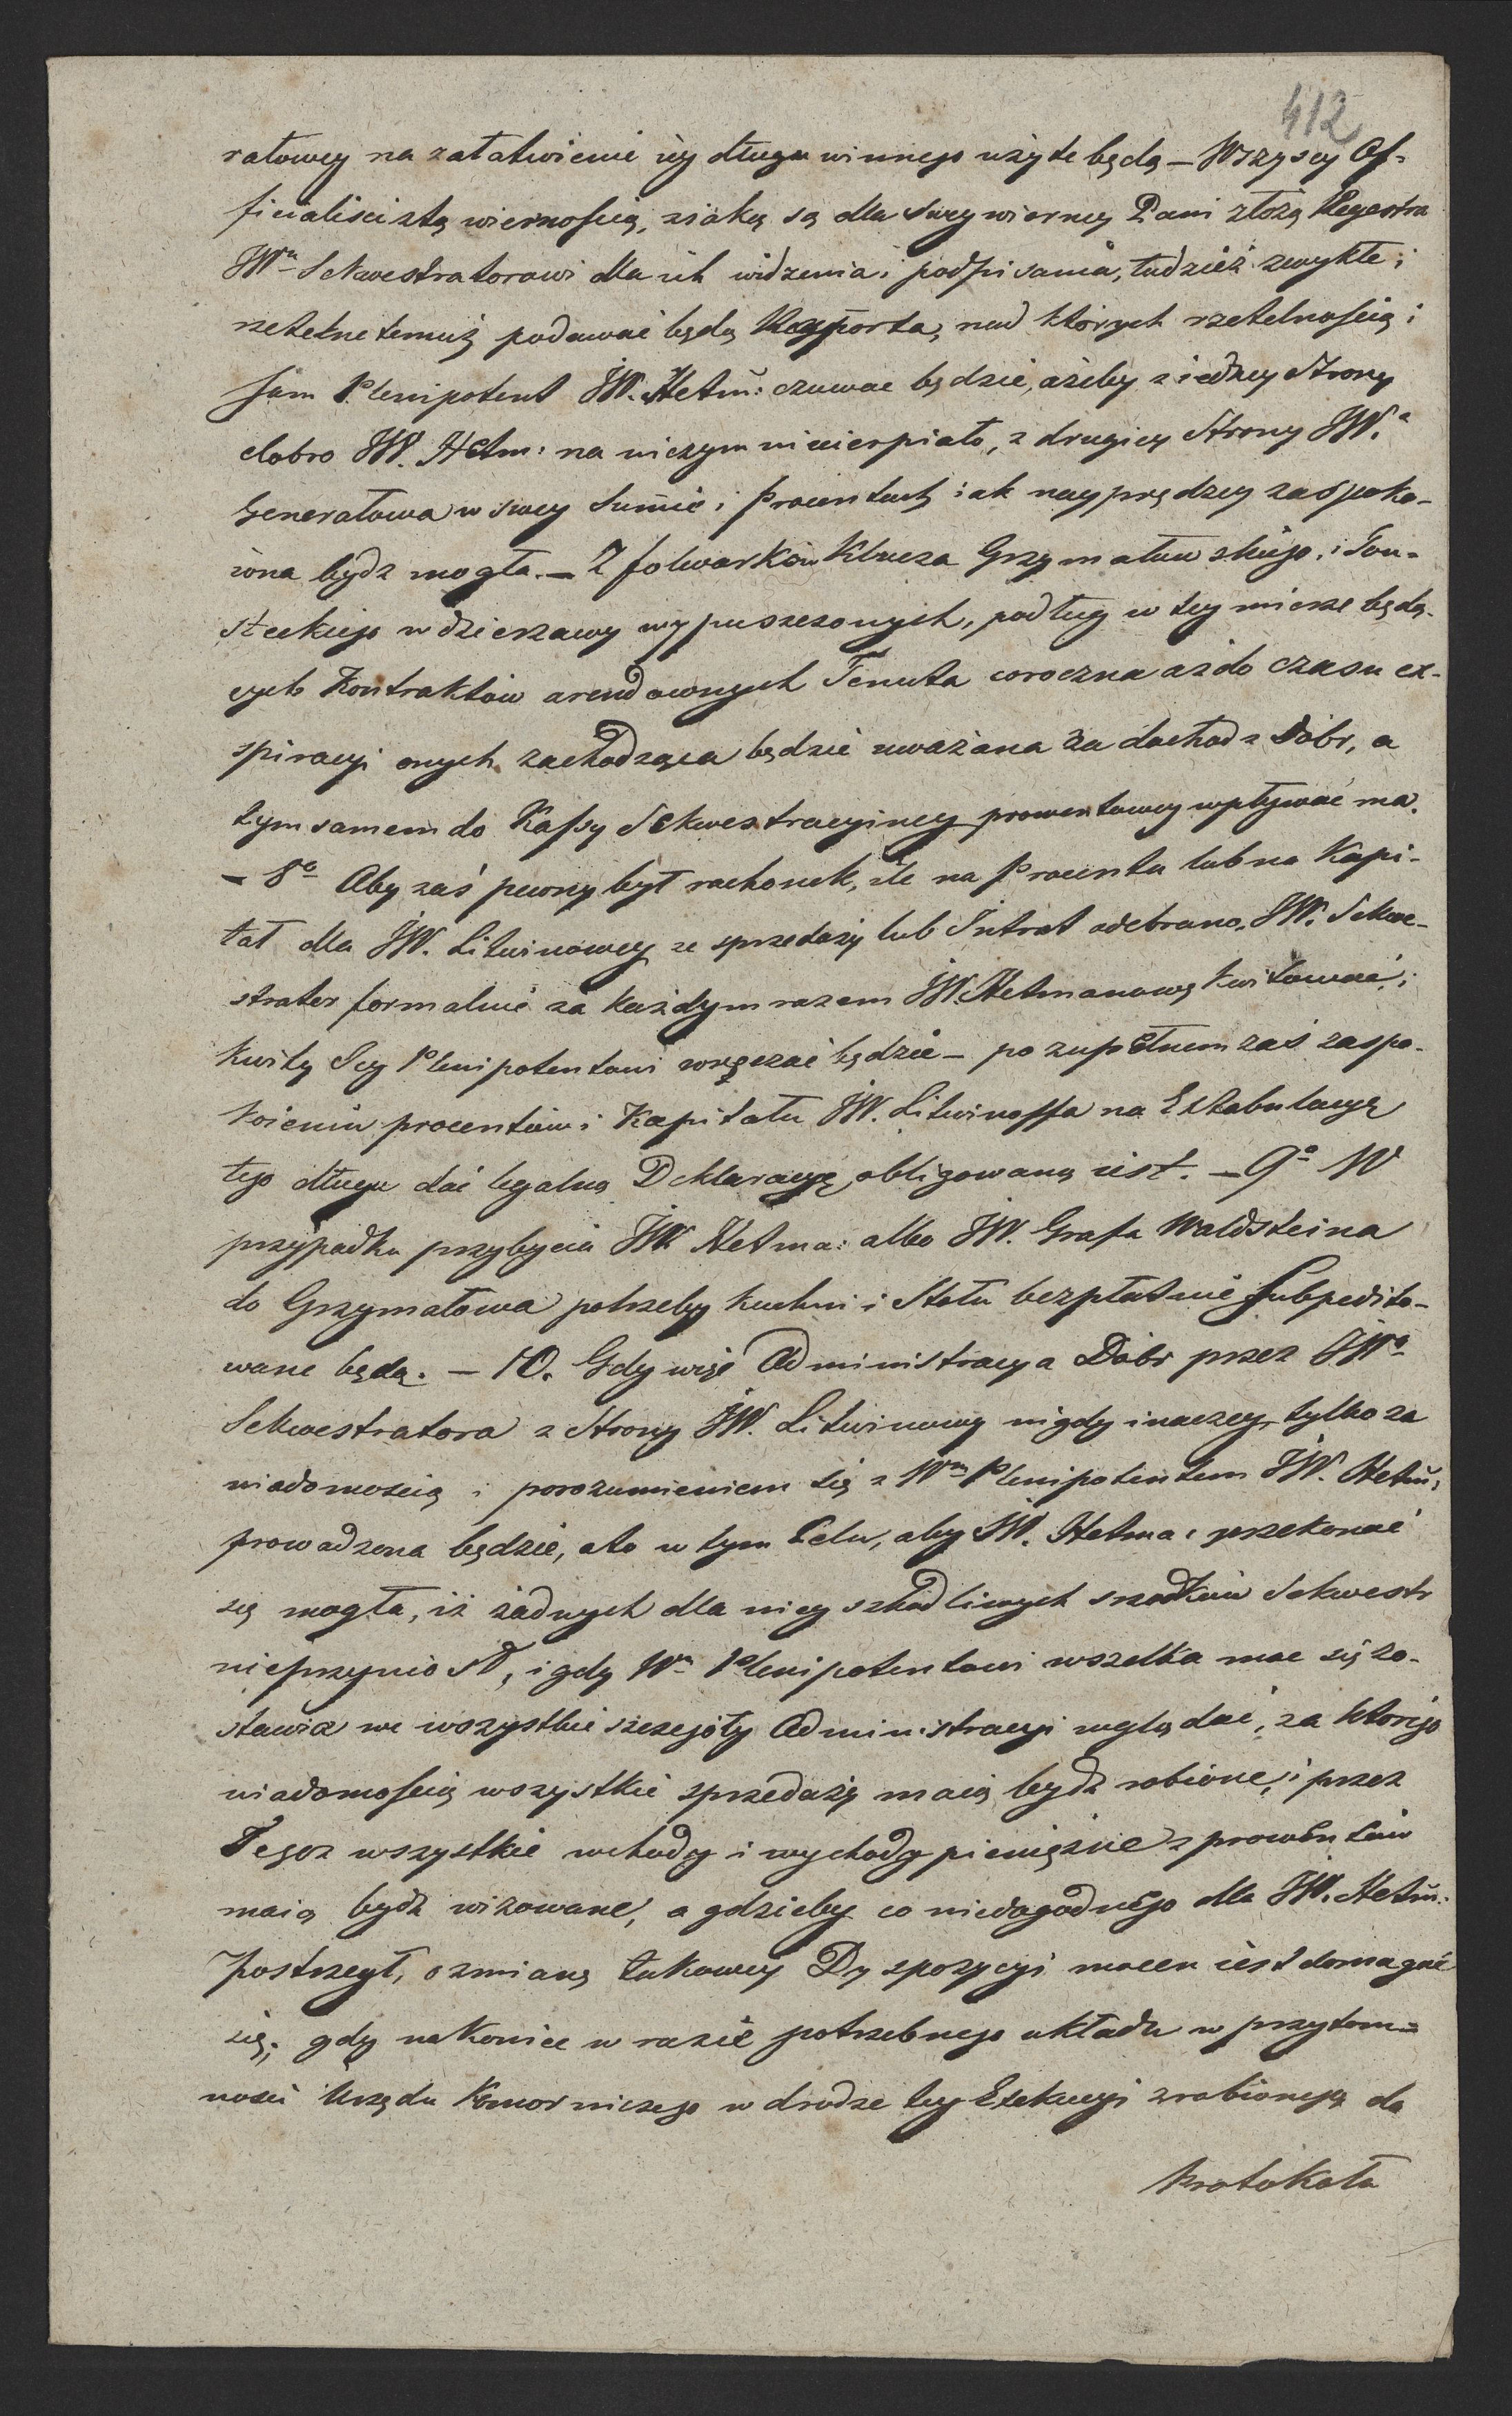 412
ratowey na załatwienie iey długu winnego użyte będą — Wszyscy Of-
ficialiści z tą wiernością, z iaką są dla swey wierney Pani złożą Regestra
Wu Sekwestratorowi dla ich widzenia i podpisania, tudzież zwykłe i
rzetelne temuż podawać będą Rapporta, nad których rzetelnością i
sam Plenipotent JW. Hetm: czuwac będzie, ażeby z iedney Strony
dobro JW. Hetm: na niczym nieucierpiało, z drugiey Strony JW.a
Generałowa w swey Summie i Procentach iak nayprędzey zaspoko-
iona bydz mogła. — Z folwarków Klucza Grzymałowskiego, i Tou-
steckiego w dzierzawy wypuszczonych, podług w tey mierze będą-
cych Kontraktów arendownych Tenuta coroczna aż do czasu ex-
spiracyi onych zachodząca będzie uważana za dochod z Dóbr, a
tym samem do Kassy Sekwestracyiney prowentowey wpływać ma.
— 8o Aby zaś pewny był rachonek, ile na Procenta lub na Kapi-
tał dla JW. Litwinowey ze sprzedaży lub Intrat odebrano, JW. Sekwe-
strator formalnie za każdym razem JW. Hetmanową kwitować, i
Kwity Jey Plenipotentowi wręczać będzie — po zupełnem zaś zaspo-
koieniu procentów i Kapitału JW. Litwinoffa na Extabulacyą
tego długu dać legalną Deklaracyę obligowaną iest. — 9o W
przypadku przybycia JW. Hetma: albo JW. Grafa Waldsteina
do Grzymałowa potrzeby kuchni i Stołu bezpłatnie subpedito-
wane będą. — 10. Gdy więc Administracya Dóbr przez JWo
Sekwestratora z Strony JW. Litwinowy nigdy inaczey, tylko za
wiadomością i porozumieniem się z Wm Plenipotentem JW. Hetm:
prowadzona będzie, a to w tym Celu, aby JW. Hetma: przekonać
się mogła, iż żadnych dla niey szkodliwych srzodków Sekwestr
nieprzyniosł, i gdy Wu Plenipotentowi wszelka moc się zo-
stawia we wszystkie szczegóły Administracyi wglądać, za ktorego
wiadomością wszystkie sprzedaży maią bydz robione, i przez
Tegoz wszystkie wchody i wychody pieniężne z prowentów
maią bydz wizowane, a gdzieby co niedogodnego dla JW. Hetm:
postrzegł, o zmianę takowey Dyspozycyi mocen iest domagać
się, gdy nakoniec w razie potrzebnego układu w przytom-
ności Urzędu Komorniczego w drodze tey Exekucyi zrobionego do
Protokołu